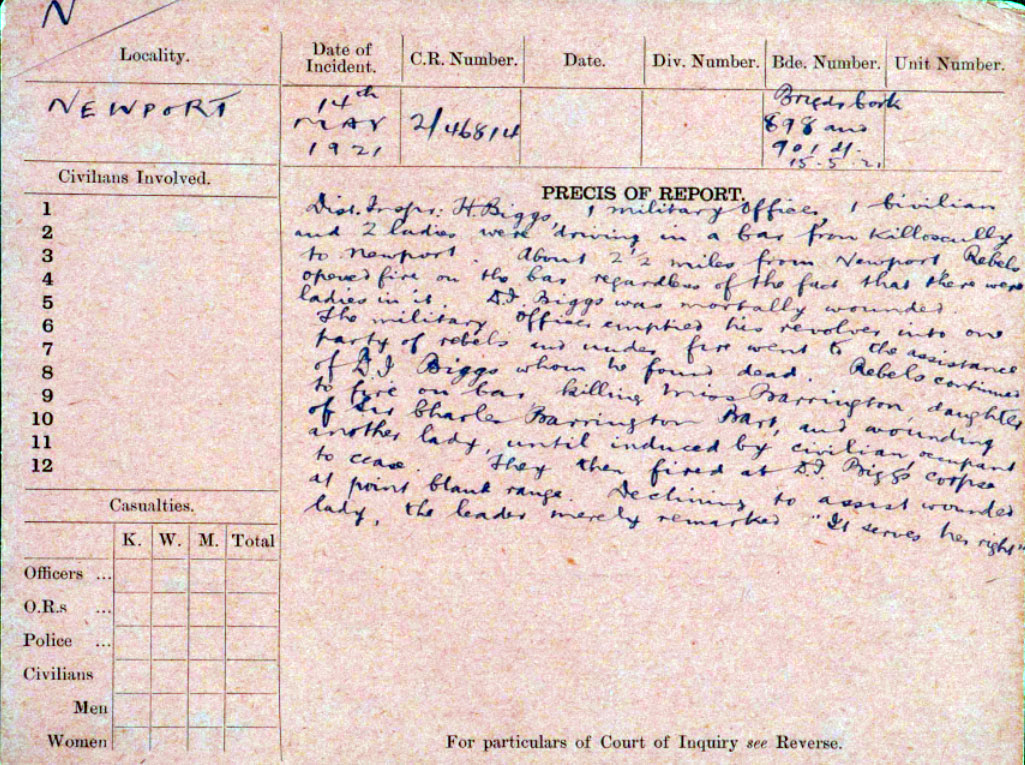 N
Locality.
Date of Incident.
C.R. Number.
Date.
Div. Number.
Bde. Number.
Unit Number.
NEWPORT
14th
MAY
1921
2/46814
898 and
901 d/-
15.5.21
Civilians Involved.
1
2
3
4
5
6
7
8
9
10
11
12
PRECIS OF REPORT.
Dist. Inspr: H. Biggs, 1 military Officer, 1 Civilian
and 2 ladies were driving in a car from Killoscully
to Newport. About 2½ miles from Newport, Rebels
opened fire on the car regardless of the fact that there were
ladies in it. D.I. Biggs was mortally wounded
The military Officer emptied his revolver into one
party of rebels and under fire went to the assistance
of D.I Biggs whom he found dead. Rebels continued
to fire on car, killing Miss Barrington, daughter
of Sir Charles Barrington Bart, and wounding
another lady, until induced by civilian occupant
to cease. They then fired at D.I Biggs corpse
at point blank range. Declining to assist wounded
lady, the leader merely remarked "It serves her right"
Casualties.
K. W. M. Total
Officers ...
O.R.s ...
Police ...
Civilians
Men
Women
For particulars of Court of Inquiry see Reverse.